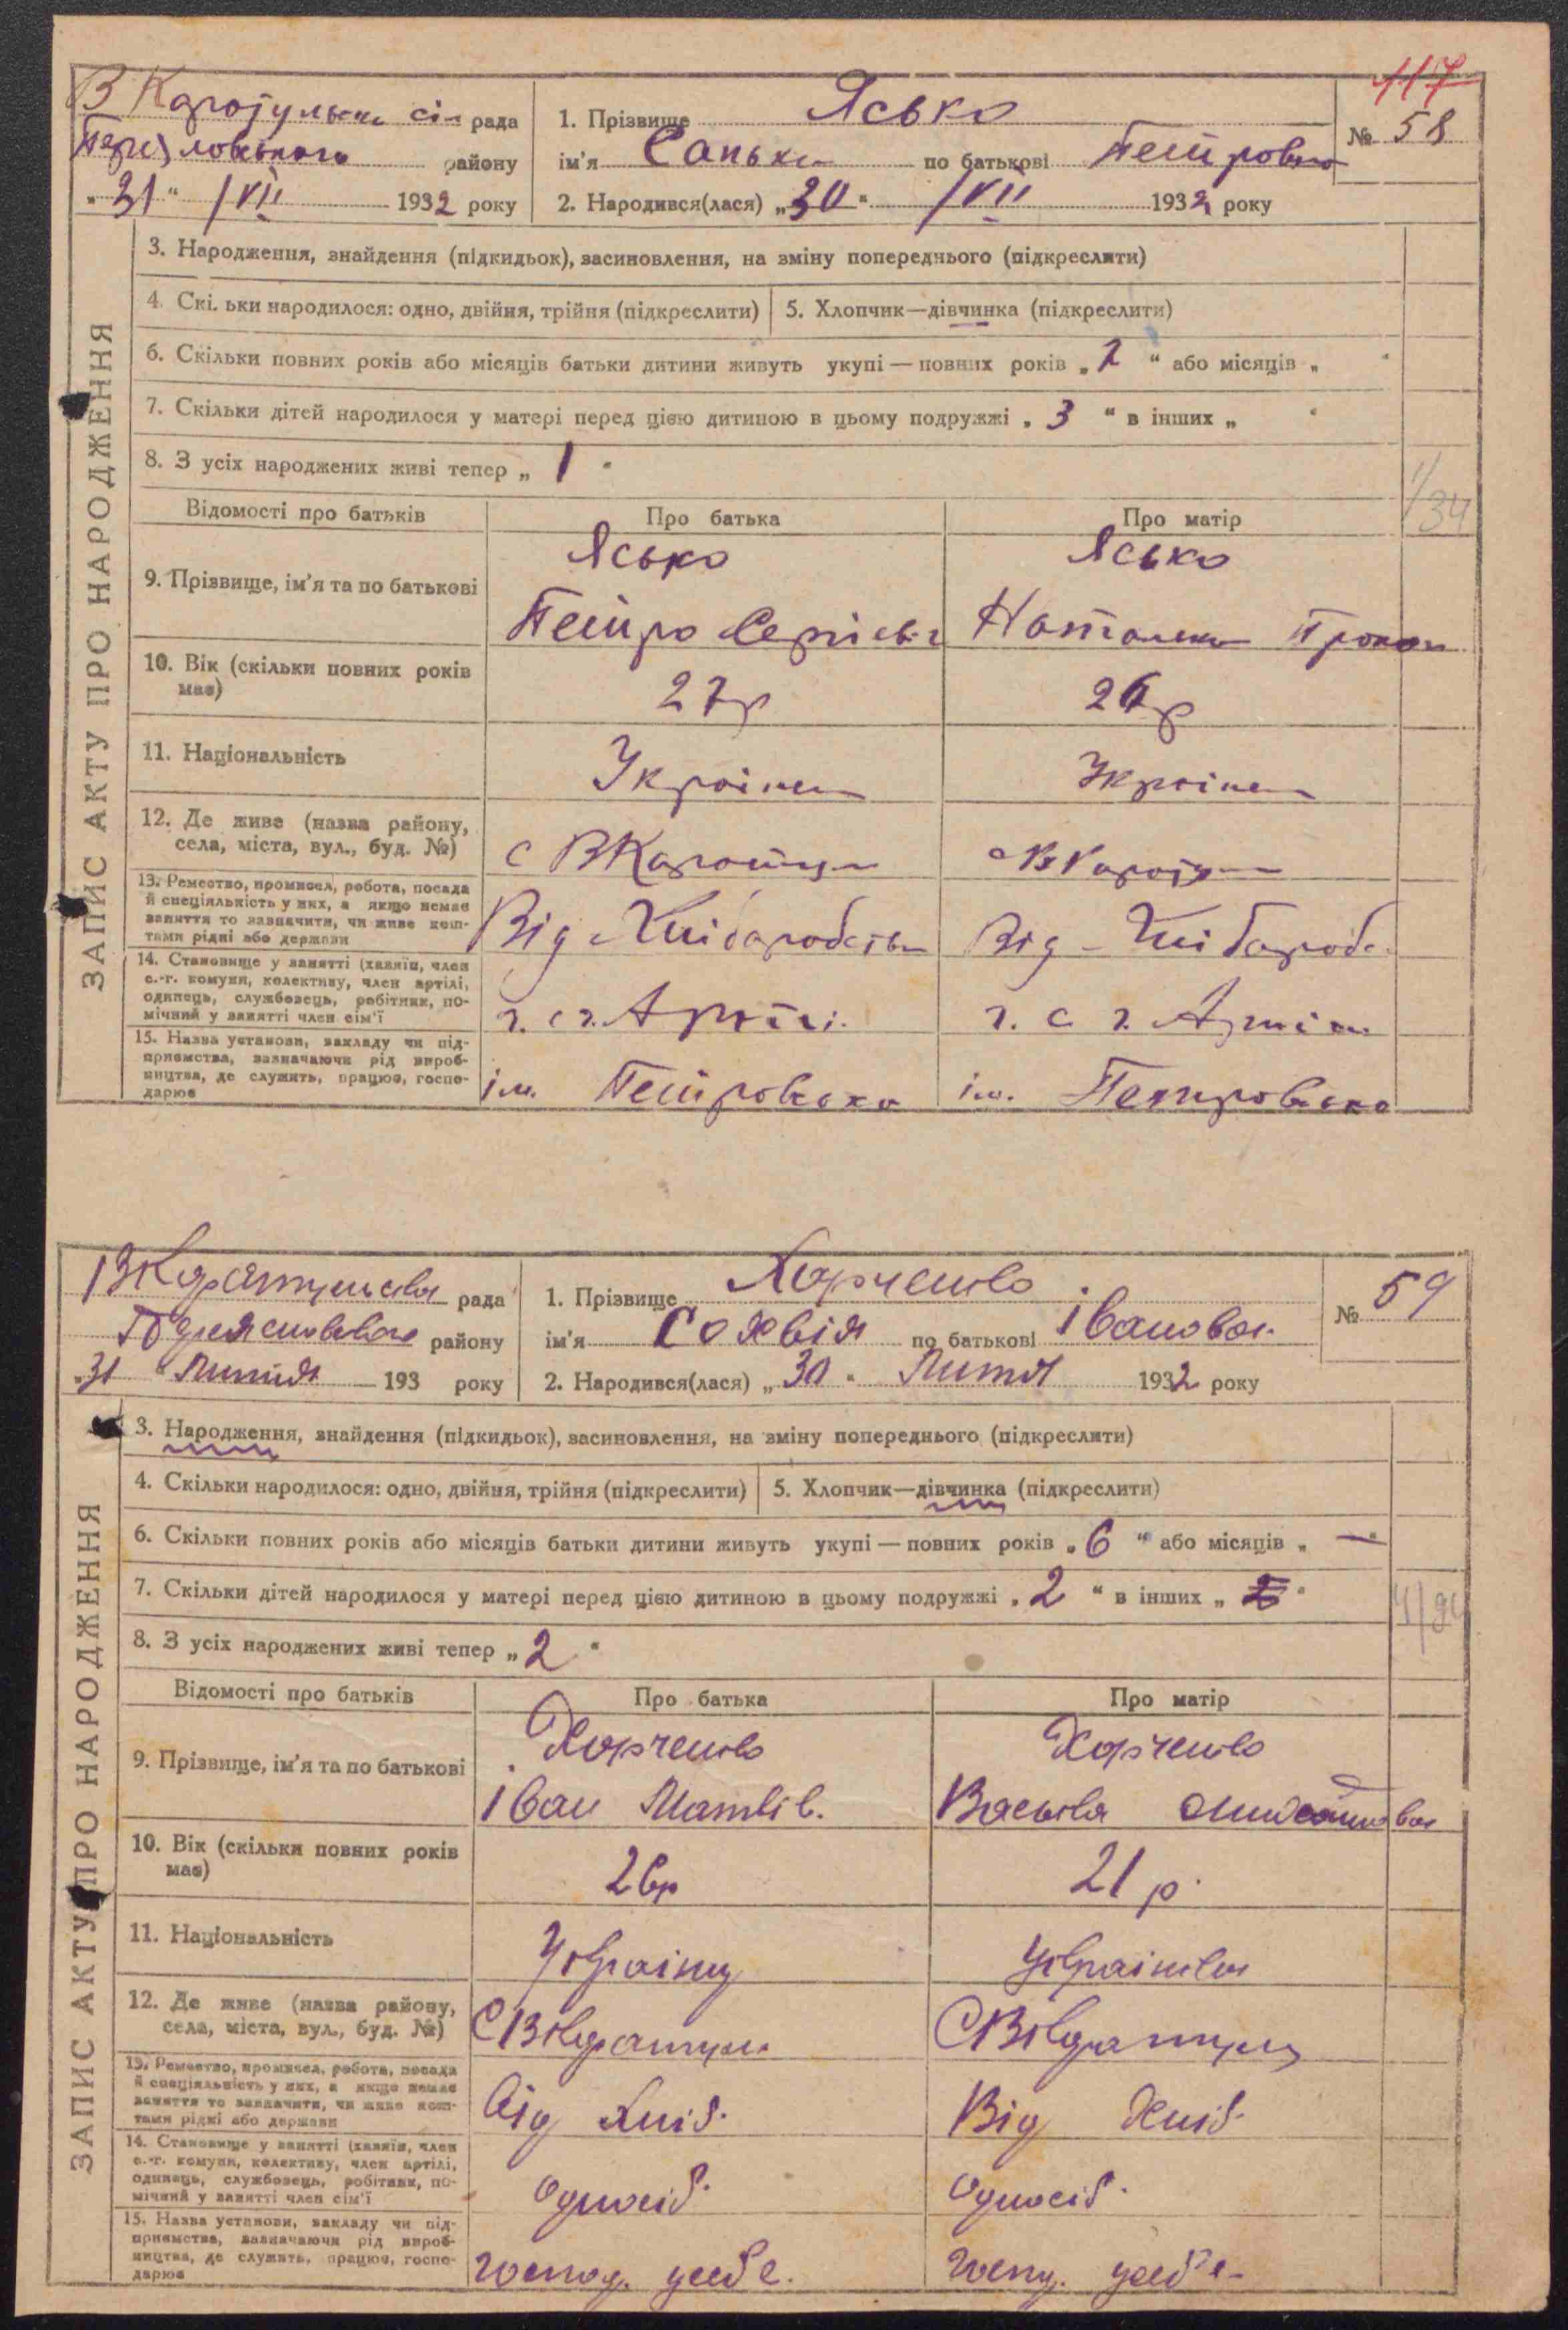 117
В Каратульська сіл рада
Переяславського району
„31“ /VII 1932 року
1. Прізвище Ясько
ім'я Санька по батькові Петровна
№ 58
2. Народився(лася) „30“ /VII 1932 року
ЗАПИС АКТУ ПРО НАРОДЖЕННЯ
3. Народження, знайдення (підкидьок), засиновлення, на зміну попереднього (підкреслити)
4. Скільки народилося: одно, двійня, трійня (підкреслити) 5. Хлопчик—дівчинка (підкреслити)
6. Скільки повних років або місяців батьки дитини живуть укупі — повних років „ “ або місяців „ “
7. Скільки дітей народилося у матері перед цією дитиною в цьому подружжі „3“ в інших „ “
8. З усіх народжених живі тепер „1“
1/34
Відомості про батьків Про батька Про матір
9. Прізвище, ім'я та по батькові
Ясько Ясько
Петро Сергієв Наталка Прокоп
10. Вік (скільки повних років має)
27р 26р
11. Національність
Українец Украінец
12. Де живе (назва району, села, міста, вул., буд. №)
с ВКаратул с ВКарату
13. Ремество, промисел, робота, посада й спеціяльність у них, а якщо немає заняття то зазначити, чи живе коштами рідні або держави
Від Хліборобств Від - Хлібороб.
14. Становище у занятті (хазяїн, член с.-г. комуни, колективу, член артілі, одинець, службовець, робітник, помічний у занятті член сім'ї
ч. с г. Артілі. ч. с г. Артіл
15. Назва установи, закладу чи підприємства, зазначаючи рід виробництва, де служить, працює, господарює
ім. Петровсько ім. Петровсько
ВКаратульська рада
Переяславськ району
„31“ Липня 193 року
1. Прізвище Харченко
ім'я Сохвія по батькові івановна
№ 59
2. Народився(лася) „30“ Липня 1932 року
ЗАПИС АКТУ ПРО НАРОДЖЕННЯ
3. Народження, знайдення (підкидьок), засиновлення, на зміну попереднього (підкреслити)
4. Скільки народилося: одно, двійня, трійня (підкреслити) 5. Хлопчик—дівчинка (підкреслити)
6. Скільки повних років або місяців батьки дитини живуть укупі — повних років „6“ або місяців „—“
7. Скільки дітей народилося у матері перед цією дитиною в цьому подружжі „2“ в інших „ “
8. З усіх народжених живі тепер „2“
Відомості про батьків Про батька Про матір
9. Прізвище, ім'я та по батькові
Харченко Харченко
іван Матвів. Васька
10. Вік (скільки повних років має)
26р 21р.
11. Національність
Українц Українка
12. Де живе (назва району, села, міста, вул., буд. №)
С ВКаратули С ВКаратул
13. Ремество, промисел, робота, посада й спеціяльність у них, а якщо немає заняття то зазначити, чи живе коштами рідні або держави
Від Хліб. Від Хліб.
14. Становище у занятті (хазяїн, член с.-г. комуни, колективу, член артілі, одинець, службовець, робітник, помічний у занятті член сім'ї
Односіб. Односіб.
15. Назва установи, закладу чи підприємства, зазначаючи рід виробництва, де служить, працює, господарює
господ. усебе. госпд. усебе